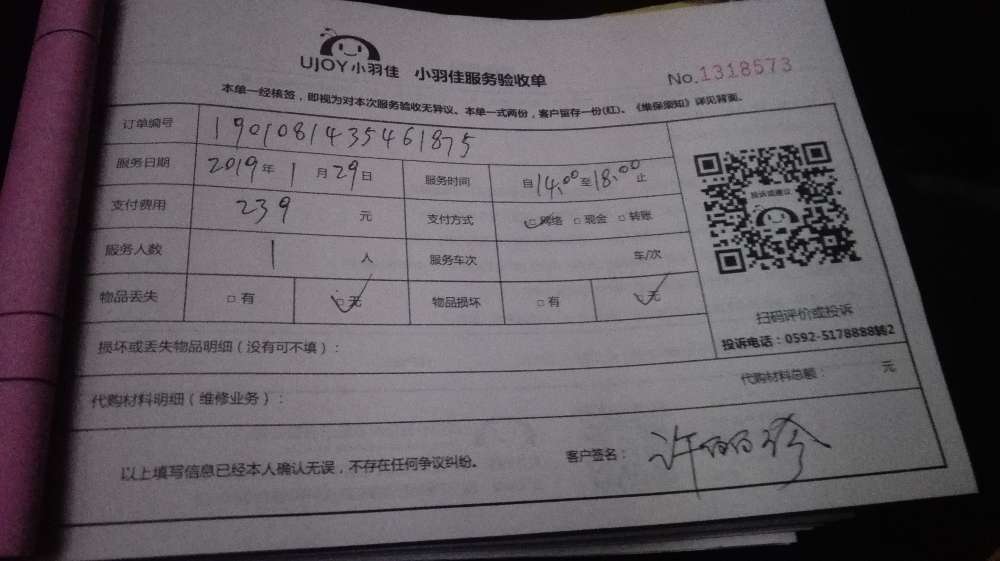 UJOY小羽佳 小羽佳服务验收单 No.1318573
本单一经核签，即视为对本次服务验收无异议。本单一式两份，客户留存一份(红)。《维保须知》详见背面。
订单编号 1901081435461875
服务日期 2019年1月29日 服务时间 自14:00至18:00止
支付费用 239 元 支付方式 □网络 □现金 □转账
服务人数 1 人 服务车次 车/次
物品丢失 □有 □无 物品损坏 □有 □无
投诉或建议
扫码评价或投诉
投诉电话：0592-5178888转2
损坏或丢失物品明细（没有可不填）：
代购材料明细（维修业务）： 代购材料总额： 元
以上填写信息已经本人确认无误，不存在任何争议纠纷。 客户签名：许丽珍